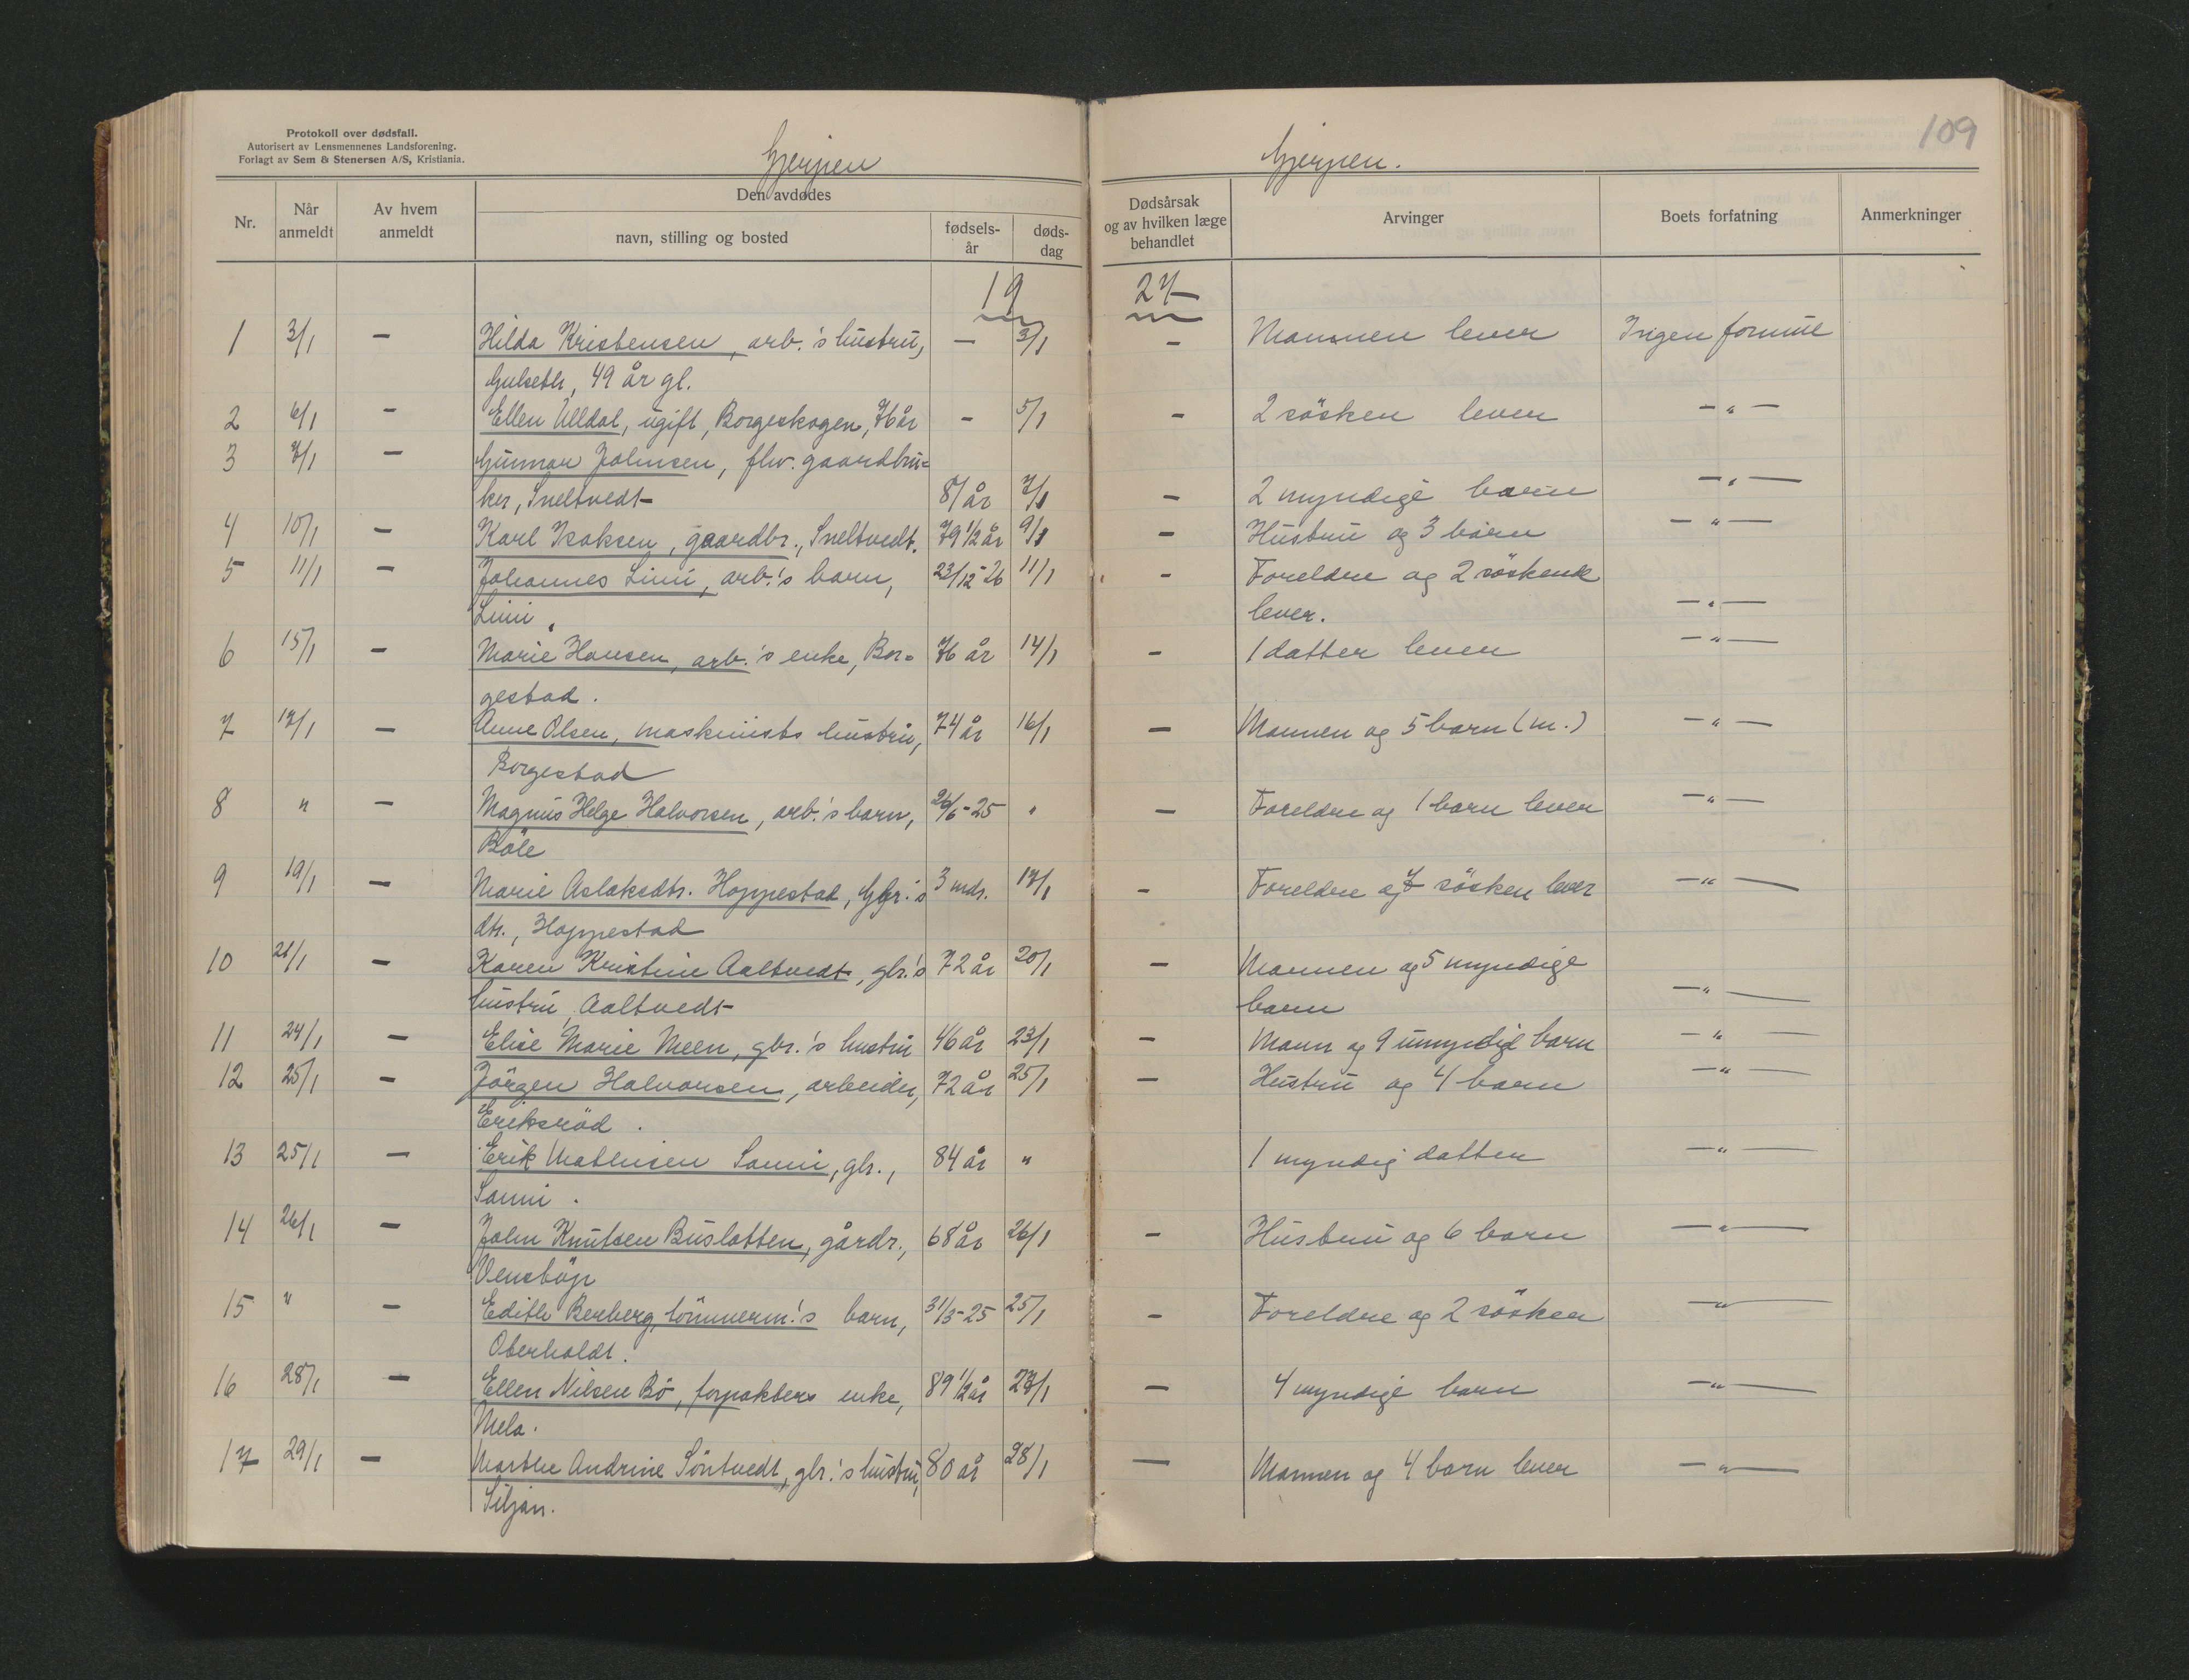 Protokoll over dødsfall.
Autorisert av Lensmennenes Landsforening.
Forlagt av Sem & Stenersen A/S, Kristiania.
Gjerpen
Gjerpen.
109
Nr.
Når anmeldt
Av hvem anmeldt
Den avdødes
navn, stilling og bosted
fødsels-år
døds-dag
Dødsårsak og av hvilken læge behandlet
Arvinger
Boets forfatning
Anmerkninger
19 27
1 3/1 — Hilda Kristensen, arb.'s hustru, — 3/1 — Mannen lever Ingen formue
Gulseth, 49 år gl.
2 6/1 — Ellen Ulldal, ugift, Borgeskogen, 76 år — 5/1 — 2 sösken lever —"—
3 7/1 — Gunnar Johnsen, fhv. gaardbru=
ker, Sneltvedt 81 år 7/1 — 2 myndige barn —"—
4 10/1 — Karl Isaksen, gaardbr., Sneltvedt. 79 1/2 år 9/1 — Hustru og 3 barn —"—
5 11/1 — Johannes Limi, arb.'s barn, 23/12-26 11/1 — Foreldre og 2 söskende
Limi. lever. —"—
6 15/1 — Marie Hansen, arb.'s enke, Bor= 76 år 14/1 — 1 datter lever —"—
gestad.
7 17/1 — Anne Olsen, maskinists hustru, 74 år 16/1 — Mannen og 5 barn (m.) —"—
Borgestad
8 " — Magnus Helge Halvorsen, arb.'s barn, 26/6-25 " — Foreldre og 1 barn lever —"—
Böle
9 19/1 — Marie Aslaksdtr. Hoppestad, gbr.'s 3 mdr. 17/1 — Foreldre og 7 sösken lever —"—
dtr., Hoppestad
10 21/1 — Karen Kristine Aaltvedt, gbr.'s 72 år 20/1 — Mannen og 5 myndige
hustru, Aaltvedt barn —"—
11 24/1 — Elise Marie Meen, gbr.'s hustru 46 år 23/1 — Mann og 9 umyndig barn —"—
12 25/1 — Jörgen Halvorsen, arbeider, 72 år 25/1 — Hustru og 4 barn —"—
Eriksröd.
13 25/1 — Erik Mathisen Sanni, gbr., 84 år " 1 myndig datter —"—
Sanni.
14 26/1 — John Knutsen Buslatten, gårdr., 68 år 26/1 — Hustru og 6 barn —"—
Venstöp
15 " — Edith Berberg, tömmerm.'s barn, 31/3-25 25/1 — Foreldre og 2 sösken —"—
Oterholdt.
16 28/1 — Ellen Nilsen Bö, forpakters enke, 89 1/2 år 27/1 — 4 myndige barn —"—
Mela.
17 29/1 — Marthe Andrine Söntvedt, gbr.'s hustru, 80 år 28/1 — Mannen og 4 barn lever —"—
Siljan.